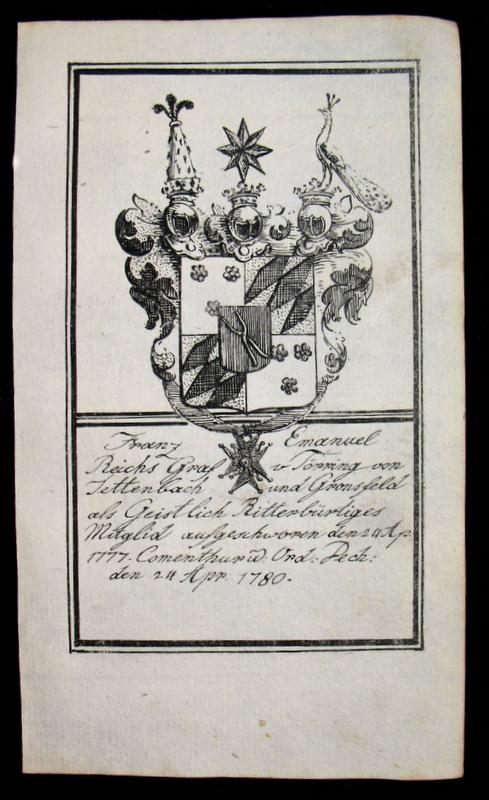 Franz Emanuel
Reichs Graf v Törring von
Tettenbach und Gronsfeld
als Geistlich Ritterbürtiges
Mitglid aufgeschworen den 24 Ap.
1777. Comenthur Ord: Dech:
den 24 Apr 1780.